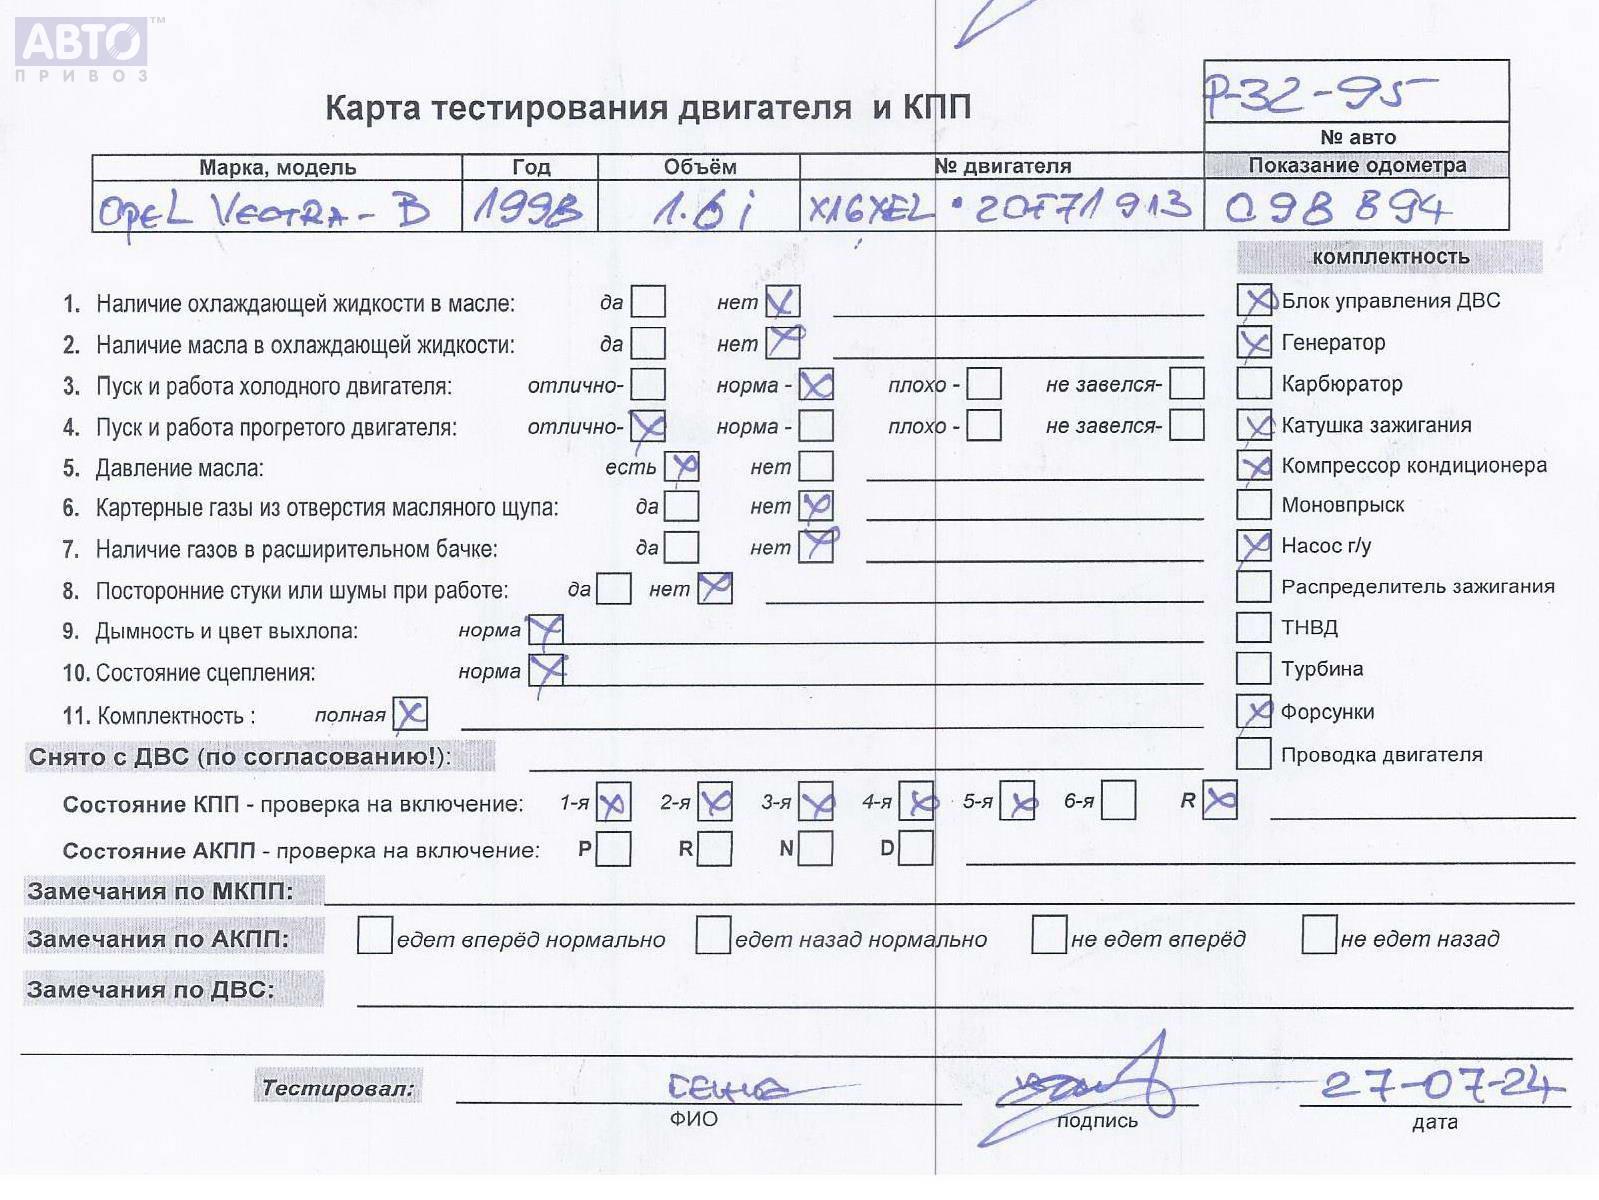 АВТО™
ПРИВОЗ
P-32-95
Карта тестирования двигателя и КПП
№ авто
Марка, модель Год Объём № двигателя Показание одометра
OPEL VECTRA-B 1998 1.6i X16XEL • 20T71913 098894
комплектность
1. Наличие охлаждающей жидкости в масле: да нет X Блок управления ДВС
2. Наличие масла в охлаждающей жидкости: да нет X Генератор
3. Пуск и работа холодного двигателя: отлично- норма - X плохо - не завелся- Карбюратор
4. Пуск и работа прогретого двигателя: отлично- X норма - плохо - не завелся- X Катушка зажигания
5. Давление масла: есть X нет X Компрессор кондиционера
6. Картерные газы из отверстия масляного щупа: да нет X Моновпрыск
7. Наличие газов в расширительном бачке: да нет X X Насос г/у
8. Посторонние стуки или шумы при работе: да нет X Распределитель зажигания
9. Дымность и цвет выхлопа: норма X ТНВД
10. Состояние сцепления: норма X Турбина
11. Комплектность : полная X X Форсунки
Снято с ДВС (по согласованию!): Проводка двигателя
Состояние КПП - проверка на включение: 1-я X 2-я X 3-я X 4-я X 5-я X 6-я R X
Состояние АКПП - проверка на включение: P R N D
Замечания по МКПП:
Замечания по АКПП: едет вперёд нормально едет назад нормально не едет вперёд не едет назад
Замечания по ДВС:
Тестировал: 27-07-24
ФИО подпись дата